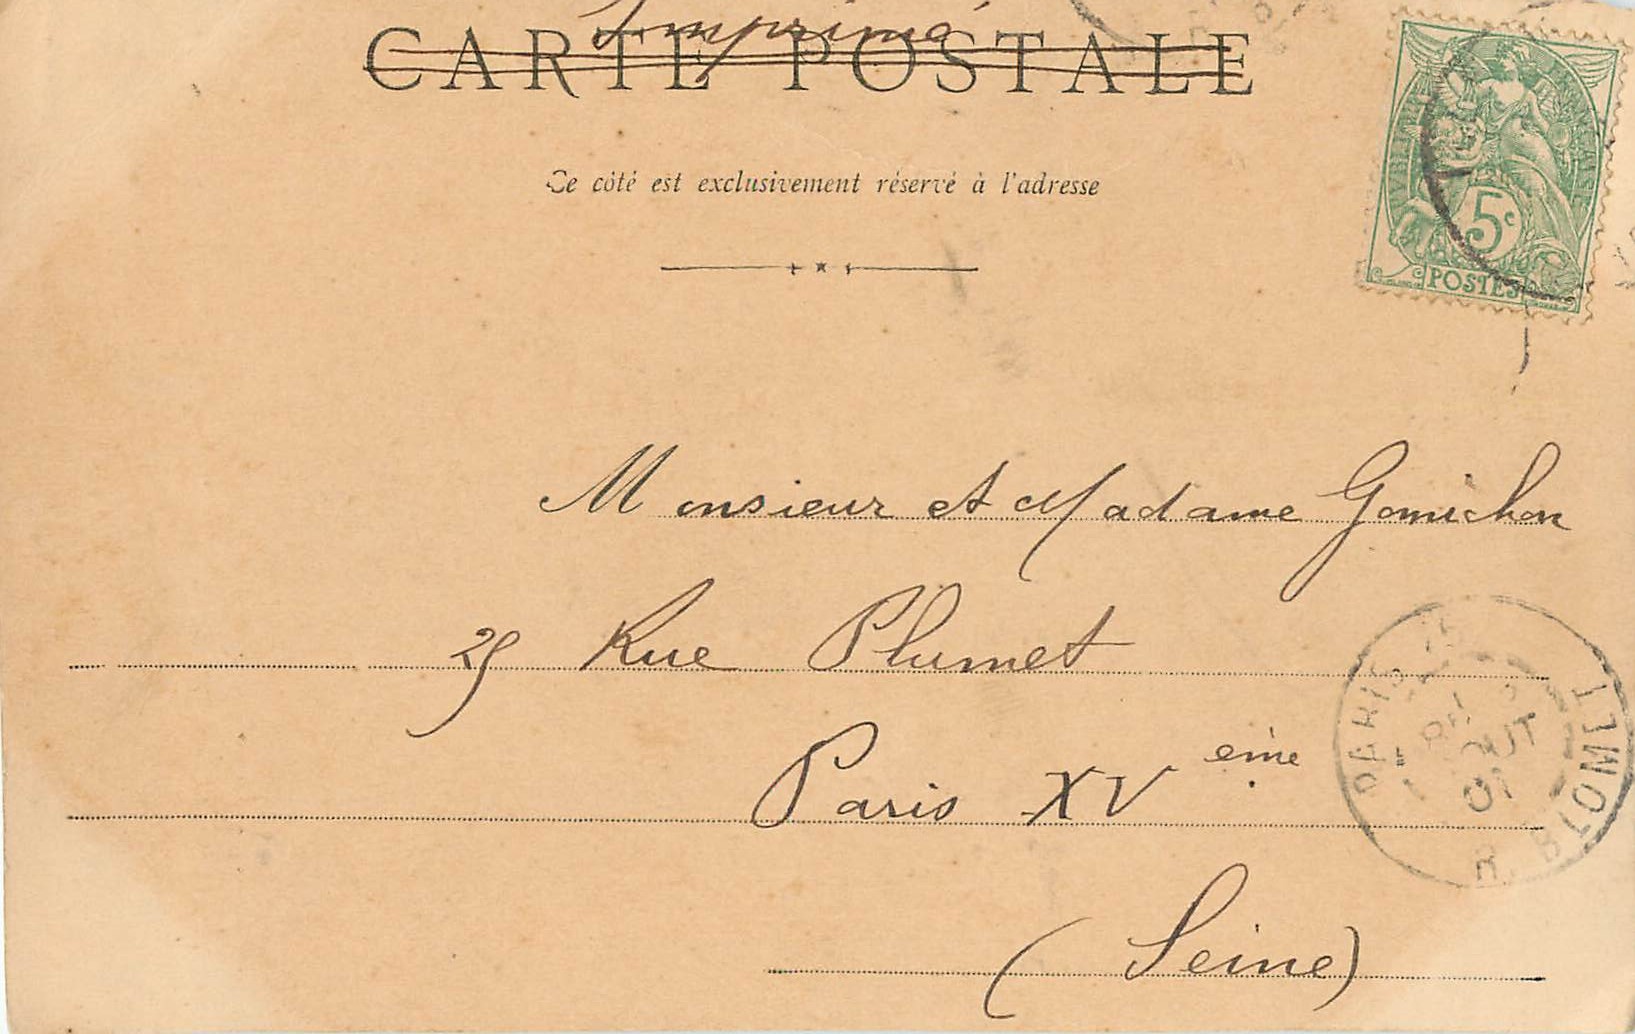 Imprimé
CARTE POSTALE
Ce côté est exclusivement réservé à l'adresse
5c
POSTES
Monsieur et Madame Gomichon
25 Rue Plumet
Paris XV eme
(Seine)
PARIS
OUT
01
R. BLOMET